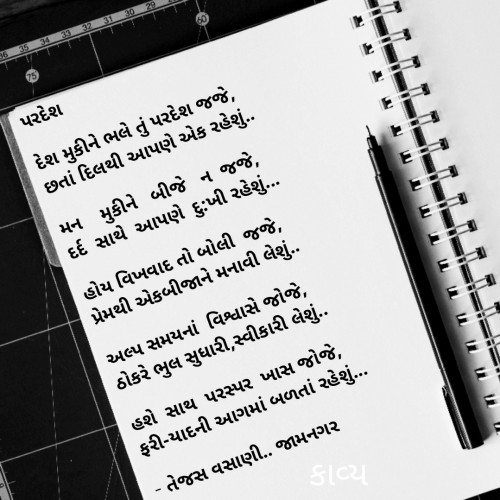 પરદેશ
દેશ મુકીને ભલે તું પરદેશ જજે,
છતાં દિલથી આપણે એક રહેશું..
મન મુકીને બીજે ન જજે,
દર્દ સાથે આપણે દુઃખી રહેશું...
હોય વિખવાદ તો બોલી જજે,
પ્રેમથી એકબીજાને મનાવી લેશું..
અલ્પ સમયનાં વિશ્વાસે જોજે,
ઠોકરે ભુલ સુધારી,સ્વીકારી લેશું..
હશે સાથ પરસ્પર ખાસ જોજે,
ફરી-યાદની આગમાં બળતાં રહેશું...
- તેજસ વસાણી.. જામનગર
કાવ્ય
75
60
36 35 34 33 32 31 30 29